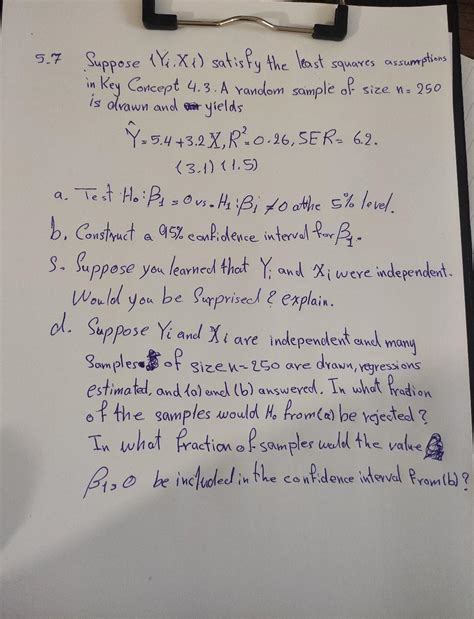 5.7 Suppose (Yi, Xi) satisfy the least squares assumptions
in Key Concept 4.3. A random sample of size n = 250
is drawn and yields
Ŷ = 5.4 + 3.2 X, R² = 0.26, SER = 6.2.
(3.1) (1.5)
a. Test H₀: β₁ = 0 vs. H₁: β₁ ≠ 0 at the 5% level.
b. Construct a 95% confidence interval for β₁.
S. Suppose you learned that Yi and Xi were independent.
Would you be Surprised? explain.
d. Suppose Yi and Xi are independent and many
Samples of size n = 250 are drawn, regressions
estimated, and (a) and (b) answered. In what fraction
of the samples would H₀ from (a) be rejected?
In what fraction of samples would the value
β₁ = 0 be included in the confidence interval from (b)?